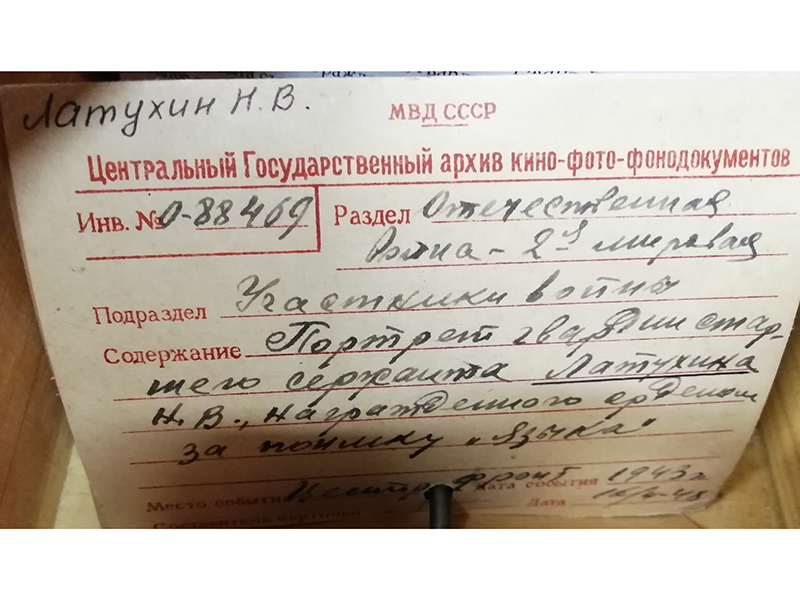 Латухин Н.В.
МВД СССР
Центральный Государственный архив кино-фото-фонодокументов
Инв. № 0-88469 Раздел Отечественная
война - 2я мировая
Подраздел Участники войны
Содержание Портрет гвардии стар-
шего сержанта Латухина
Н.В., награжденного орденом
за поимку „языка"
Место события Центр. фронт Дата события 1943 г.
Дата
Составитель карточки